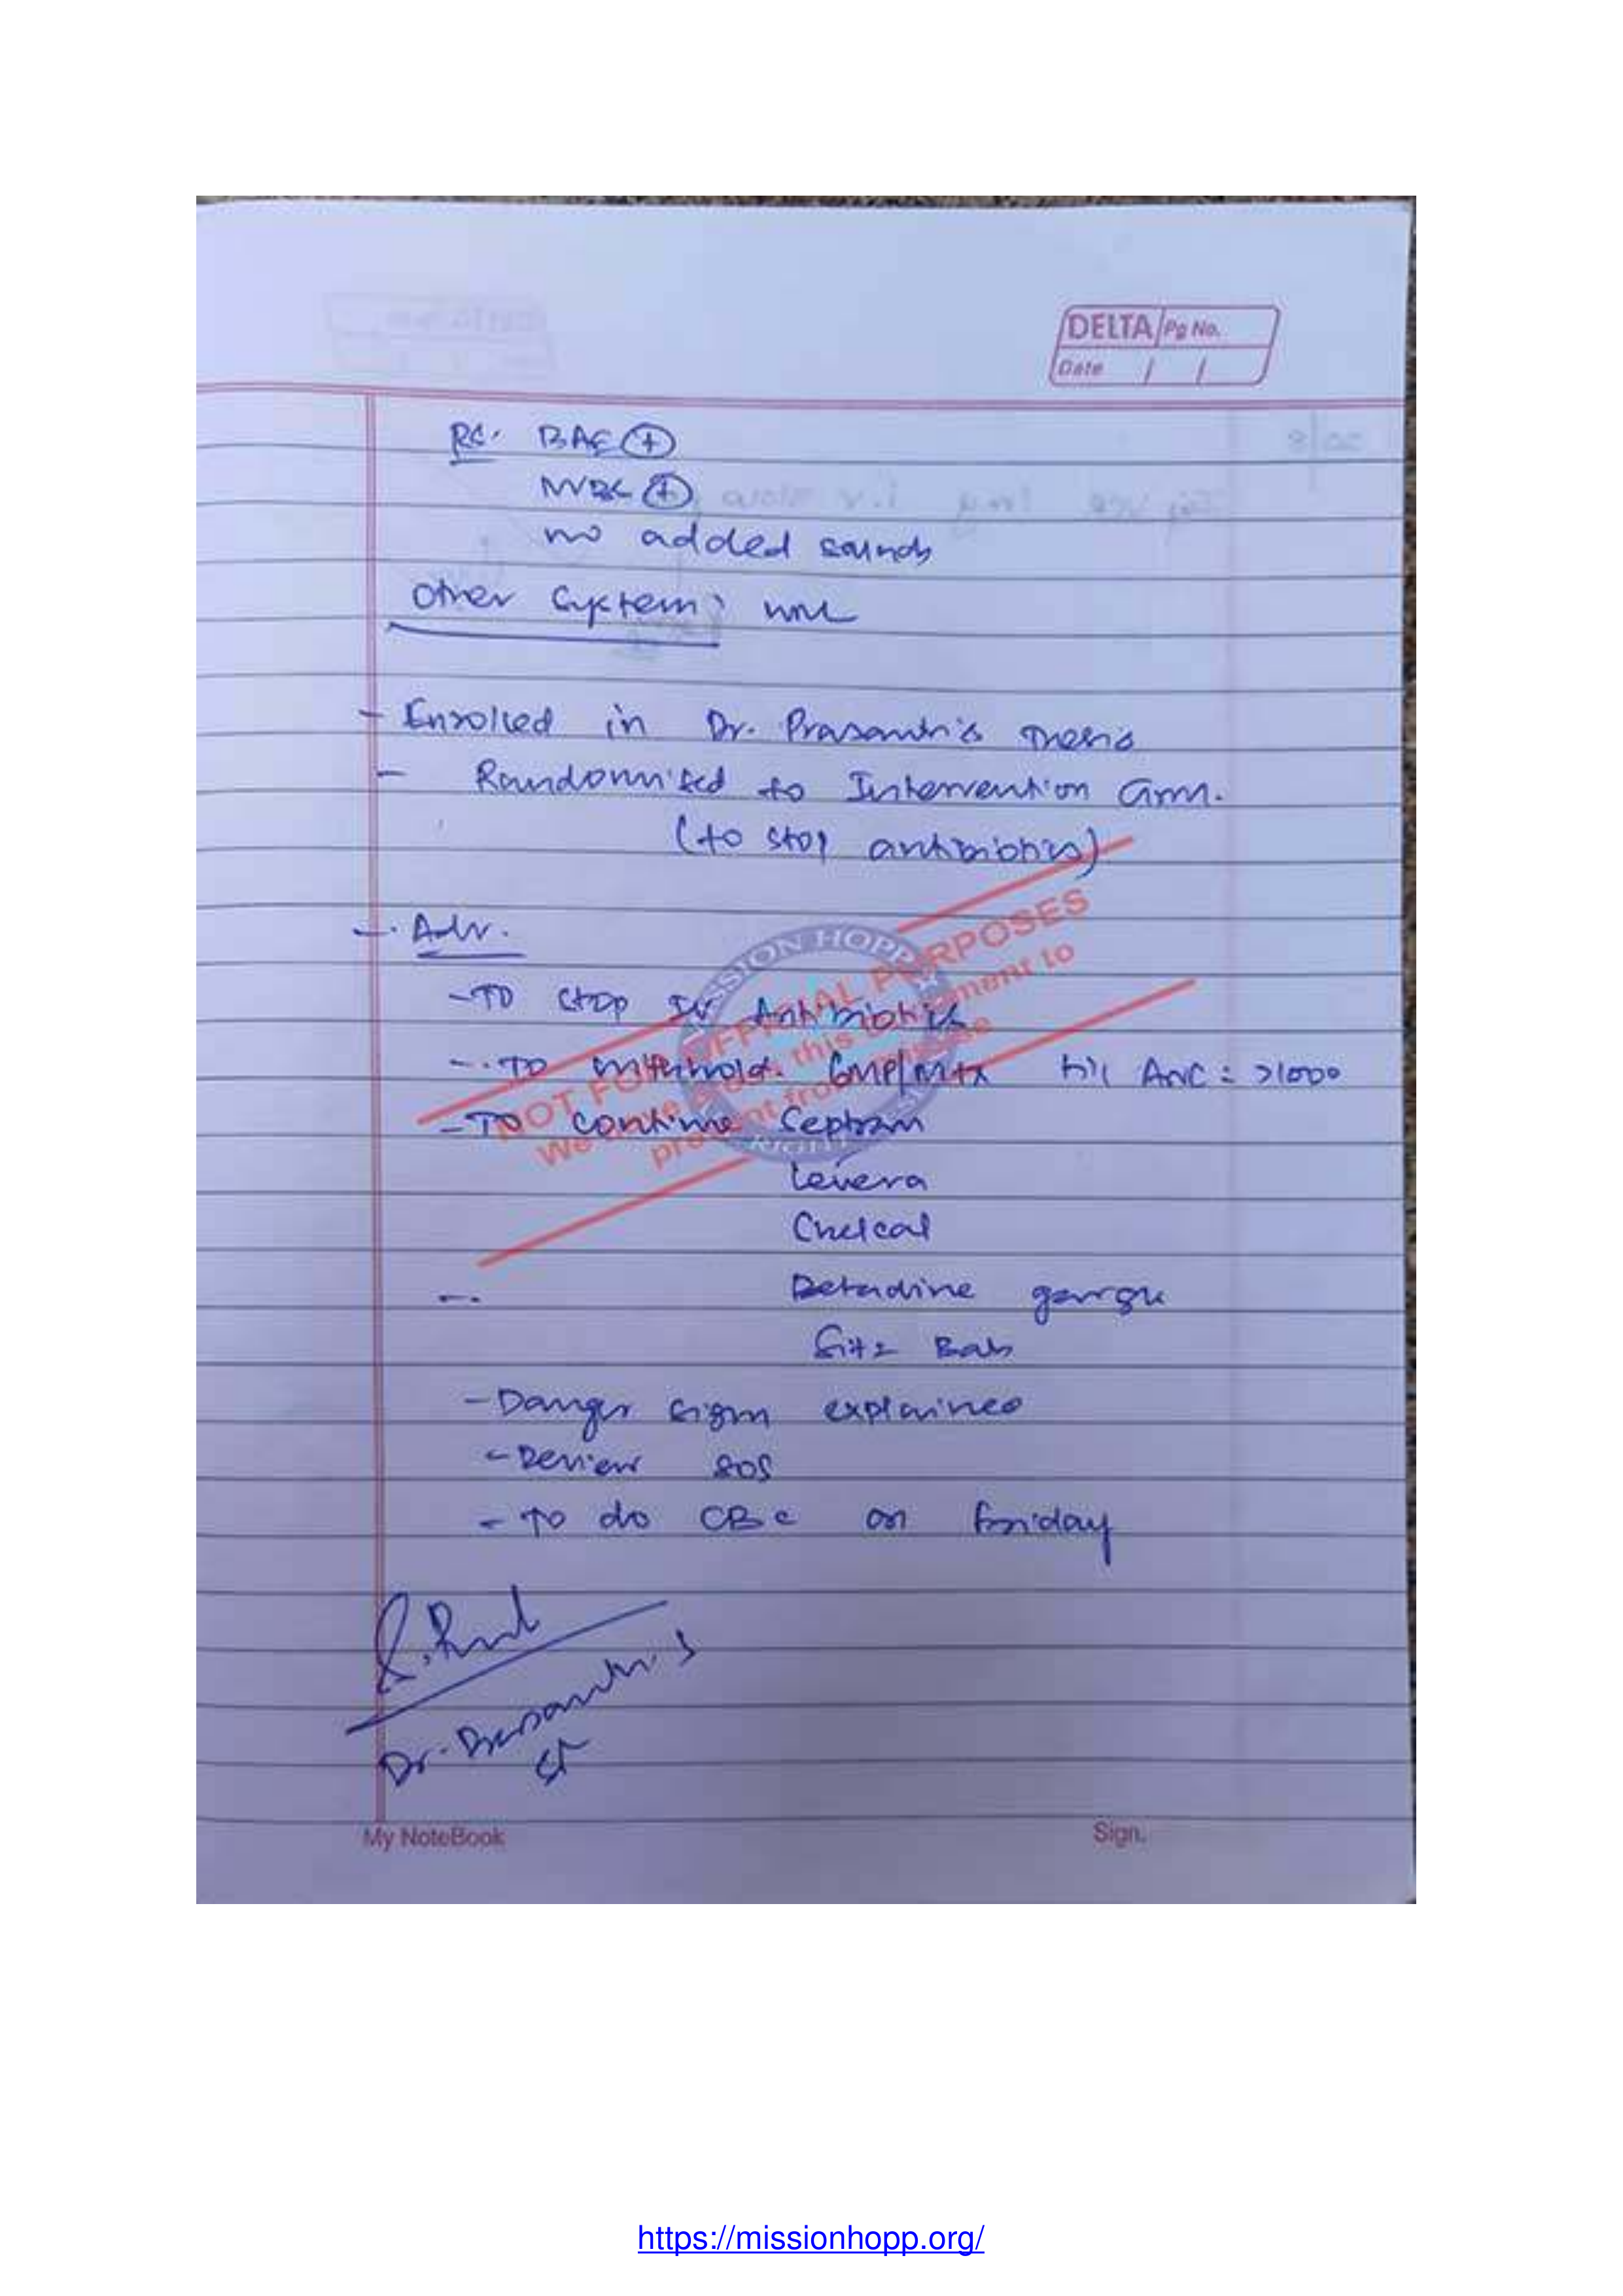 DELTA Pg No.
Date / /
RS: BAE (+)
NVBS (+)
no added sounds
Other System: WNL
- Enrolled in Dr. Prasanth's Thesis
- Randomised to Intervention arm.
(to stop antibiotics)
- Adv.
- TO stop IV Antibiotics
- TO withhold 6MP/MTX till ANC = >1000
- TO continue Septran
Levera
Chelcal
- Betadine gargle
Sitz Bath
- Danger sign explained
- Review SOS
- TO do CBC on friday
Dr. Prasanth S
SR
My NoteBook
Sign.
MISSION HOPP
NOT FOR OFFICIAL PURPOSES
https://missionhopp.org/